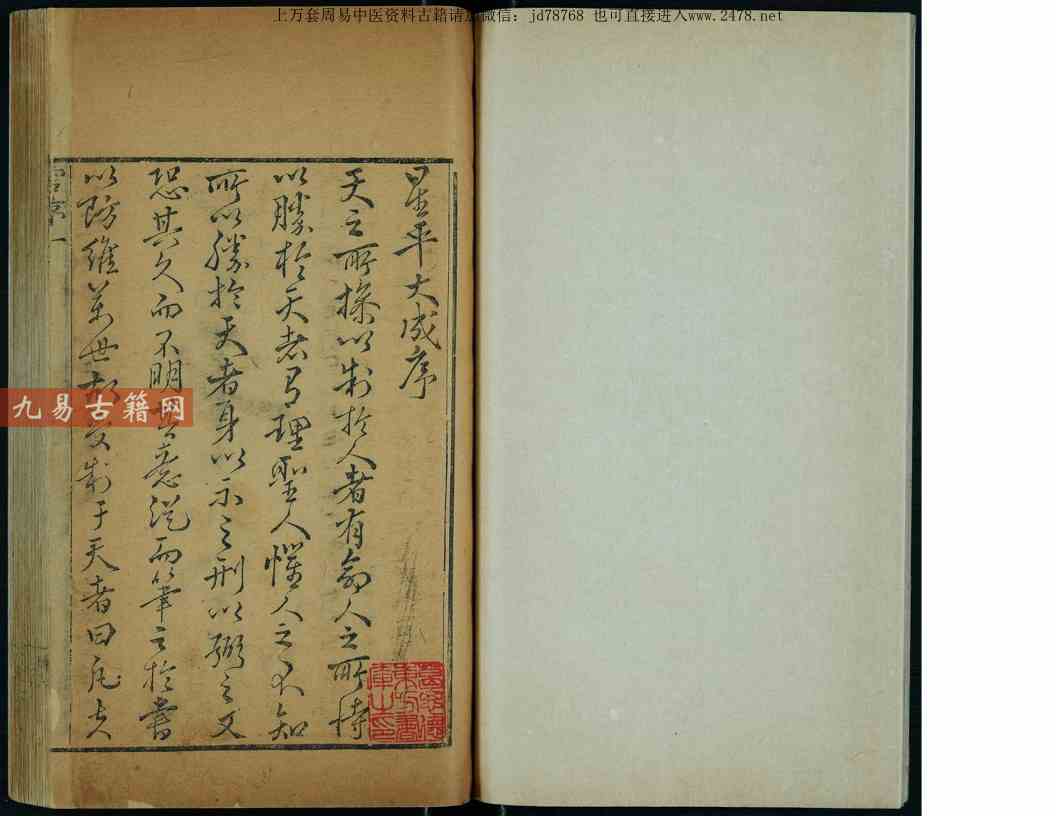 上万套周易中医资料古籍请加微信：jd78768 也可直接进入www.2478.net
星平大成序
天之所操以制於人者有命人之所恃
以勝於天者有理聖人懼人之不知
所以勝於天者身以示之刑以弼之又
恐其久而不明也意從而筆之於書
以防維萬世故受制于天者曰死夫
九易古籍网